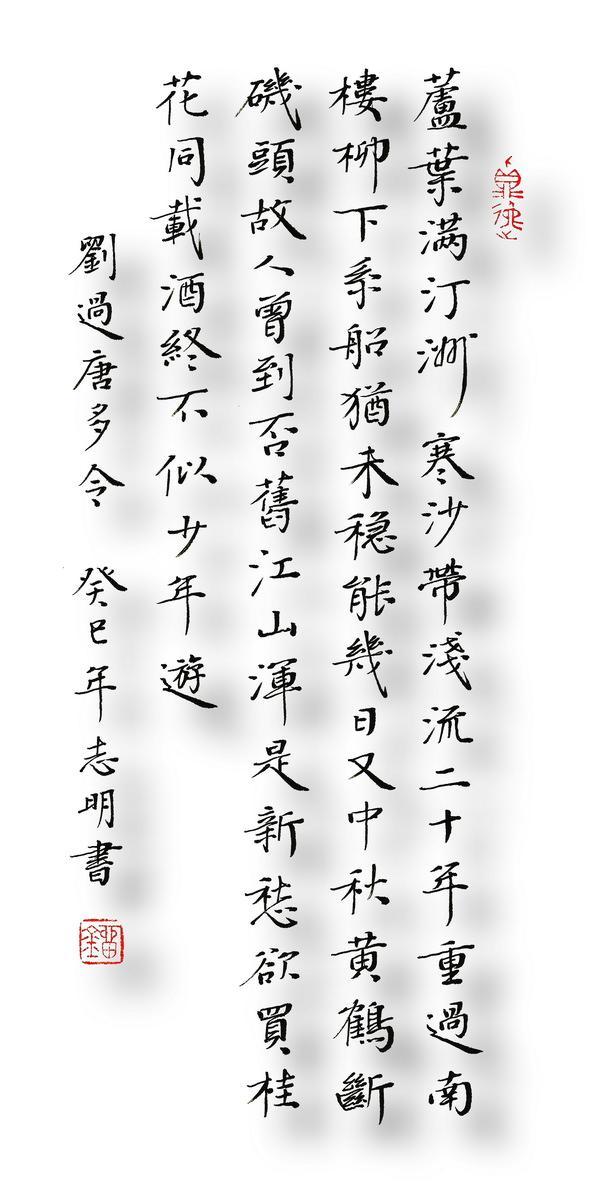 蘆葉满汀洲寒沙帶淺流二十年重過南
樓柳下系船猶未稳能幾日又中秋黄鶴斷
磯頭故人曾到否舊江山渾是新愁欲買桂
花同載酒終不似少年遊
劉過唐多令 癸巳年志明書